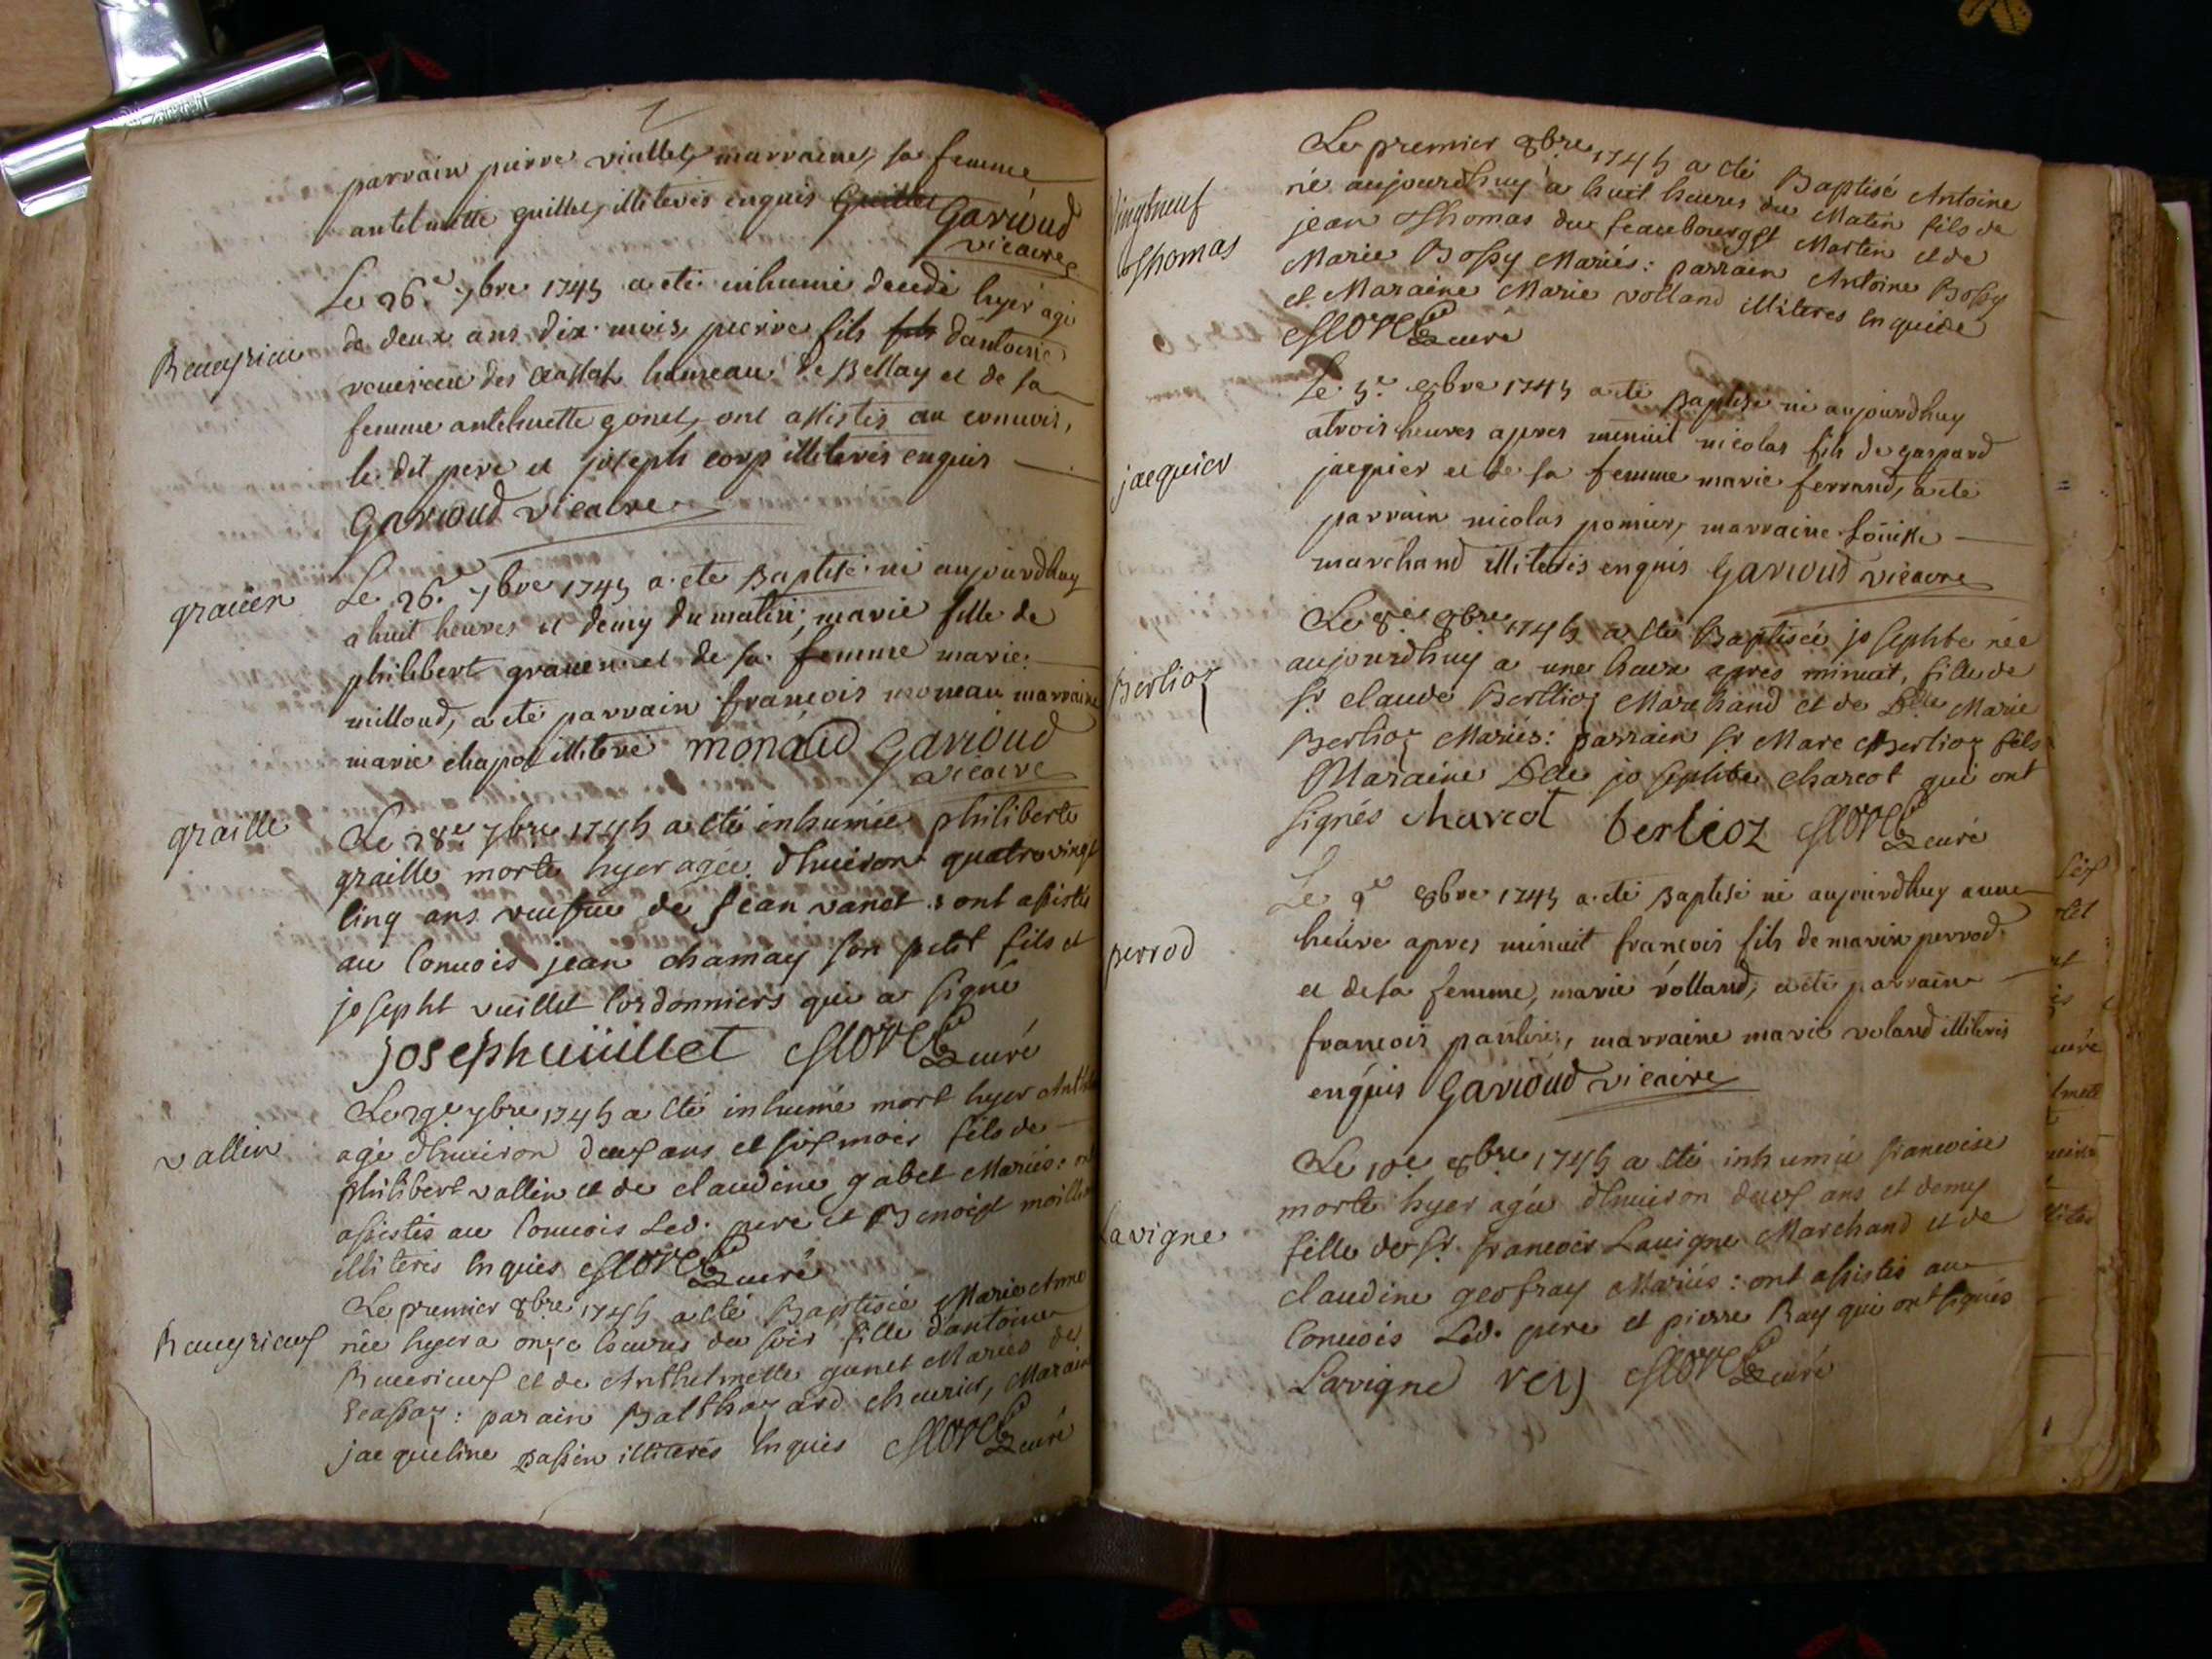 parrain pierre viallet, marraine, sa femme
antelmette guillet, illiterés enquis Guillet Garioud
vicaire
Le 26.e 7bre 1745 a eté inhumé decedé hyer agé
de deux ans dix mois, pierre fils fils d'antoine
Beneyrieu
veneirieu des hameau de Bellay et de sa
femme antelmette gonet, ont assistés au convois,
le dit pere et joseph corp illiterés enquis
Garioud vicaire
Le 26.e 7bre 1745 a eté Baptisé né aujourdhuy
grauen
a huit heures et demy du matin, marie fille de
philibert grauen et de sa femme marie
milloud, a eté parrain françois moneau marraine
marie chapot illiteré monaud Garioud
vicaire
graille
Le 28e 7bre 1745 a eté inhumée philiberte
graille morte hyer agée d'huiron quatrevingt
cinq ans veufue de jean vanet : ont assistés
au Conuois jean chamay son petit fils et
josepht vuillet Cordonniers qui a signé
Joseph uüillet curé
Le 29e 7bre 1745 a eté inhumé mort hyer
vallin
agé d'huiron deux ans et six mois fils de
philibert vallin et de claudine gabet Mariés : ont
assistés au Conuois Led. pere et Benoist
illiterés Enquis curé
Le premier 8bre 1745 a eté Baptisée Marie Anne
Beneyrieux
née hyer a onze heures du soir fille d'antoine
et de Anthelmette gunet Mariés de
: parain Balthazard cheurier, Maraine
jacqueline passin illiterés Enquis curé
Le premier 8bre 1745 a eté Baptisé Antoine
Vingtneuf
né aujourdhuy a huit heures du Matin fils de
Thomas
jean Thomas du feaubourg St Martin et de
Marie Bossy Mariés : parrain Antoine Bossy
et Maraine Marie volland illiteres Enquis
curé
Le 5.e 8bre 1745 a eté Baptisé né aujourdhuy
a trois heures apres minuit nicolas fils de gaspard
jacquier
jacquier et de sa femme marie ferrand, a eté
parrain nicolas pomier, marraine
marchand illiterés enquis Garioud vicaire
Le 8e 8bre 1745 a eté Baptisée josephte née
aujourdhuy a une heure apres minuit, fille de
Berlioz
Sr claude Berllioz Marchand et de Dlle Marie
Berlioz Mariés : parrain Sr Marc Berlioz fils
Maraine Dlle josephte charcot qui ont
signés charcot berlioz curé
Le 9e 8bre 1745 a eté Baptisé né aujourdhuy a une
heure apres minuit françois fils de marin perrod
perrod
et de sa femme, marie volland, a eté parrain
françois , marraine marie voland illiterés
enquis Garioud vicaire
Le 10e 8bre 1745 a eté inhumée francoise
morte hyer agée d'huiron deux ans et demy
Lavigne
fille de Sr. francois Lauigne Marchand et de
claudine geofray Mariés : ont assistés au
Conuois Led. pere et pierre Ray qui ont signés
Lavigne rey curé